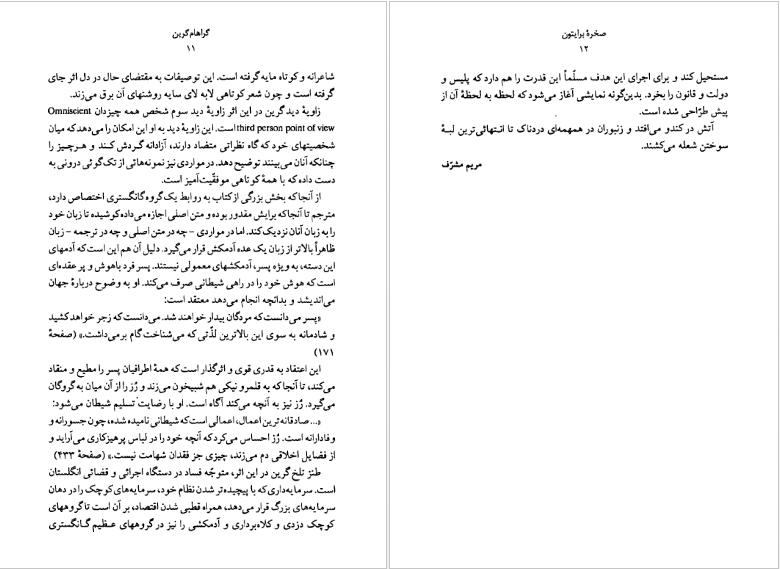 گراهام گرین
۱۱
شاعرانه و کوتاه مایه گرفته است. این توصیفات به مقتضای حال در دل اثر جای
گرفته است و چون شعر کوتاهی لابه لای سایه روشنهای آن برق می‌زند.
زاویهٔ دید گرین در این اثر زاویهٔ دید سوم شخص همه چیزدان Omniscient
third person point of view است. این زاویهٔ دید به او این امکان را می‌دهد که میان
شخصیتهای خود که گاه نظراتی متضاد دارند، آزادانه گردش کند و هرچیز را
چنانکه آنان می‌بینند توضیح دهد. در مواردی نیز نمونه‌هائی از تک‌گوئی درونی به
دست داده که با همهٔ کوتاهی موفقیّت‌آمیز است.
از آنجا که بخش بزرگی از کتاب به روابط یک گروه گانگستری اختصاص دارد،
مترجم تا آنجا که برایش مقدور بوده و متن اصلی اجازه می‌داده کوشیده تا زبان خود
را به زبان آنان نزدیک کند. اما در مواردی – چه در متن اصلی و چه در ترجمه – زبان
ظاهراً بالاتر از زبان یک عده آدمکش قرار می‌گیرد. دلیل آن هم این است که آدمهای
این دسته، به ویژه پسر، آدمکشهای معمولی نیستند. پسر فرد باهوش و پر عقده‌ای
است که هوش خود را در راهی شیطانی صرف می‌کند. او به وضوح دربارهٔ جهان
می‌اندیشد و بدانچه انجام می‌دهد معتقد است:
«پسر می‌دانست که مردگان بیدار خواهند شد. می‌دانست که زجر خواهد کشید
و شادمانه به سوی این بالاترین لذّتی که می‌شناخت گام برمی‌داشت.» (صفحهٔ
۱۷۱)
این اعتقاد به قدری قوی و اثرگذار است که همهٔ اطرافیان پسر را مطیع و منقاد
می‌کند، تا آنجا که به قلمرو نیکی هم شبیخون می‌زند و رُز را از آن میان به گروگان
می‌گیرد. رُز نیز به آنچه می‌کند آگاه است. او با رضایت تسلیم شیطان می‌شود:
«... صادقانه‌ترین اعمال، اعمالی است که شیطانی نامیده شده، چون جسورانه و
وفادارانه است. رُز احساس می‌کرد که آنچه خود را در لباس پرهیزکاری می‌آراید و
از فضایل اخلاقی دم می‌زند، چیزی جز فقدان شهامت نیست.» (صفحهٔ ۴۳۳)
طنز تلخ گرین در این اثر، متوجّه فساد در دستگاه اجرائی و قضائی انگلستان
است. سرمایه‌داری که با پیچیده‌تر شدن نظام خود، سرمایه‌های کوچک را در دهان
سرمایه‌های بزرگ قرار می‌دهد، همراه قطبی شدن اقتصاد، بر آن است تا گروههای
کوچک دزدی و کلاه‌برداری و آدمکشی را نیز در گروههای عظیم گانگستری
صخرهٔ برایتون
۱۲
مستحیل کند و برای اجرای این هدف مسلّماً این قدرت را هم دارد که پلیس و
دولت و قانون را بخرد. بدین‌گونه نمایشی آغاز می‌شود که لحظه به لحظهٔ آن از
پیش طرّاحی شده است.
آتش در کندو می‌افتد و زنبوران در همهمه‌ای دردناک تا انتهائی‌ترین لبهٔ
سوختن شعله می‌کشند.
مریم مشرّف